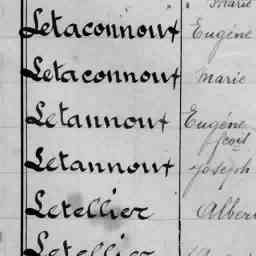 Marie
Letaconnoux Eugène
Letaconnoux Marie
Letannoux Eugène
fcois
Letannoux Joseph
Letellier Alber
Letellier